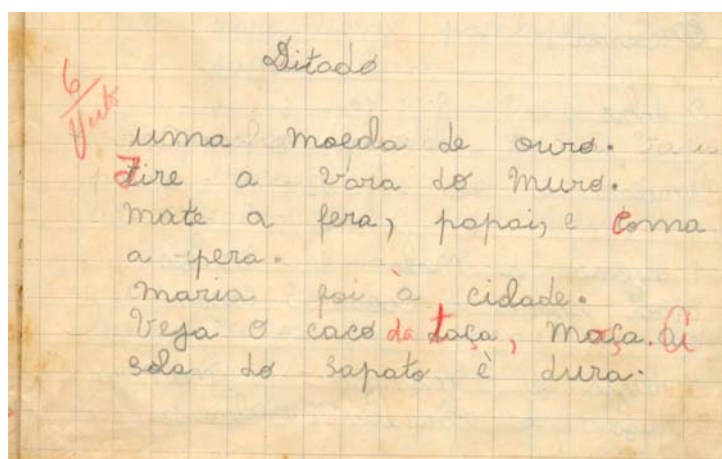 Ditado
6
uma moeda de ouro.
Tire a vara do muro.
mate a fera, papai, e coma
a pera.
maria foi à cidade.
Veja o caco da taça, moça. A
sola do sapato è dura.